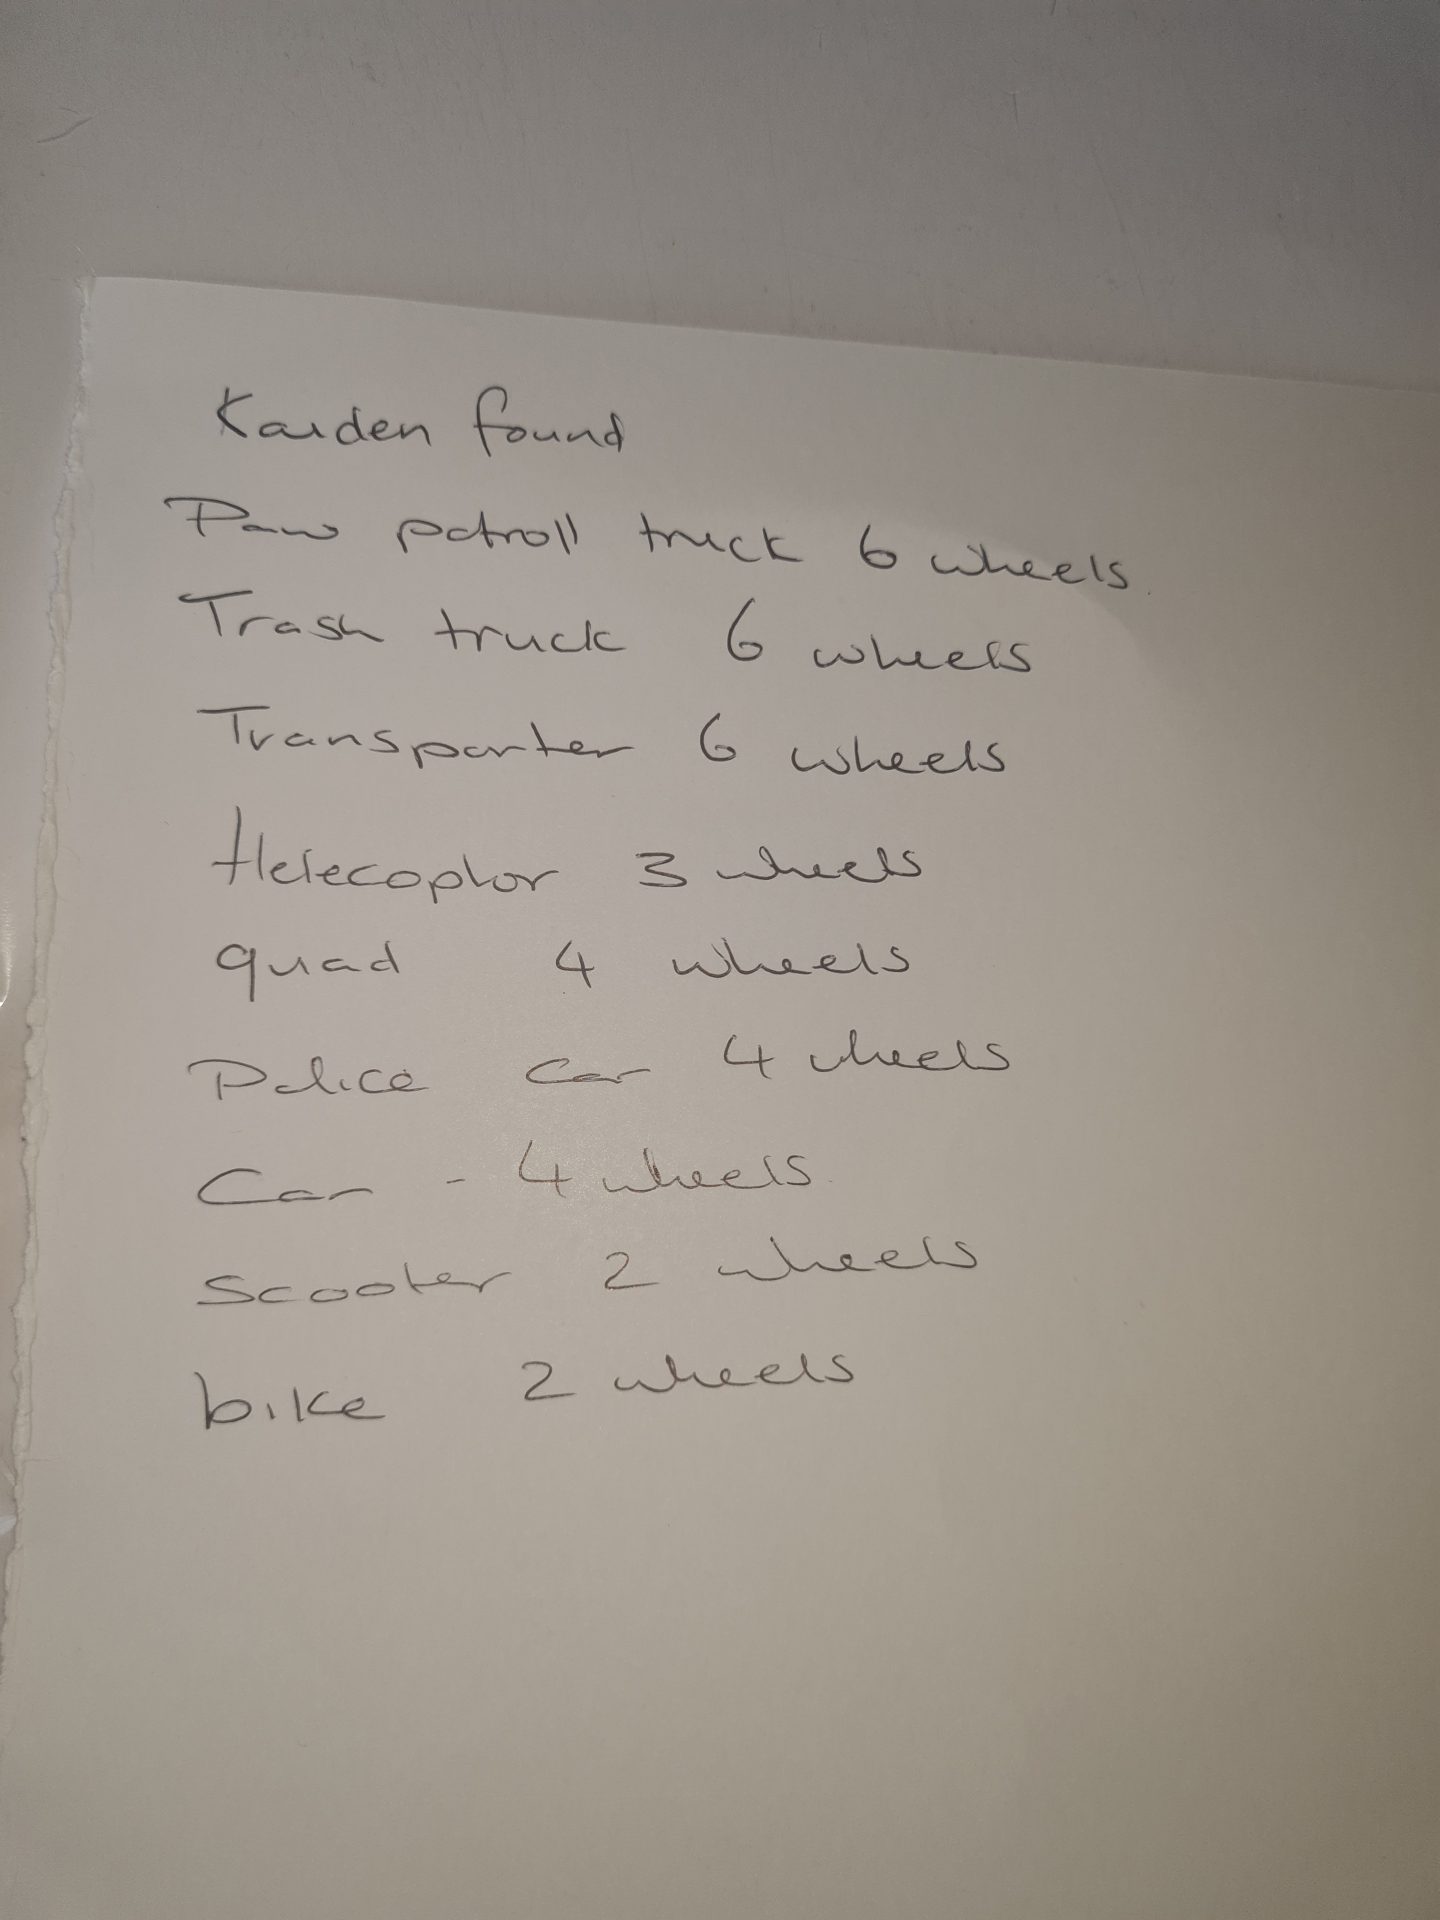 Kaiden found
Paw patroll truck 6 wheels
Trash truck 6 wheels
Transporter 6 wheels
Helecoptor 3 wheels
quad 4 wheels
Police car 4 wheels
Car - 4 wheels
Scooter 2 wheels
bike 2 wheels